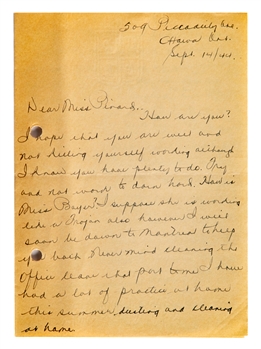 309 Piccadilly Ave.
Ottawa Ont.
Sept. 14/44.
Dear Miss
How are you?
I hope that you are well and
not yourself working although
I know you have plenty to do. Try
and not work to darn hard. How is
Miss I suppose she is working
like a Trojan also however I will
soon be down to Montreal to help
you back Never mind cleaning the
office leave that part to me I have
had a lot of practice at home
this summer, dusting and cleaning
at home